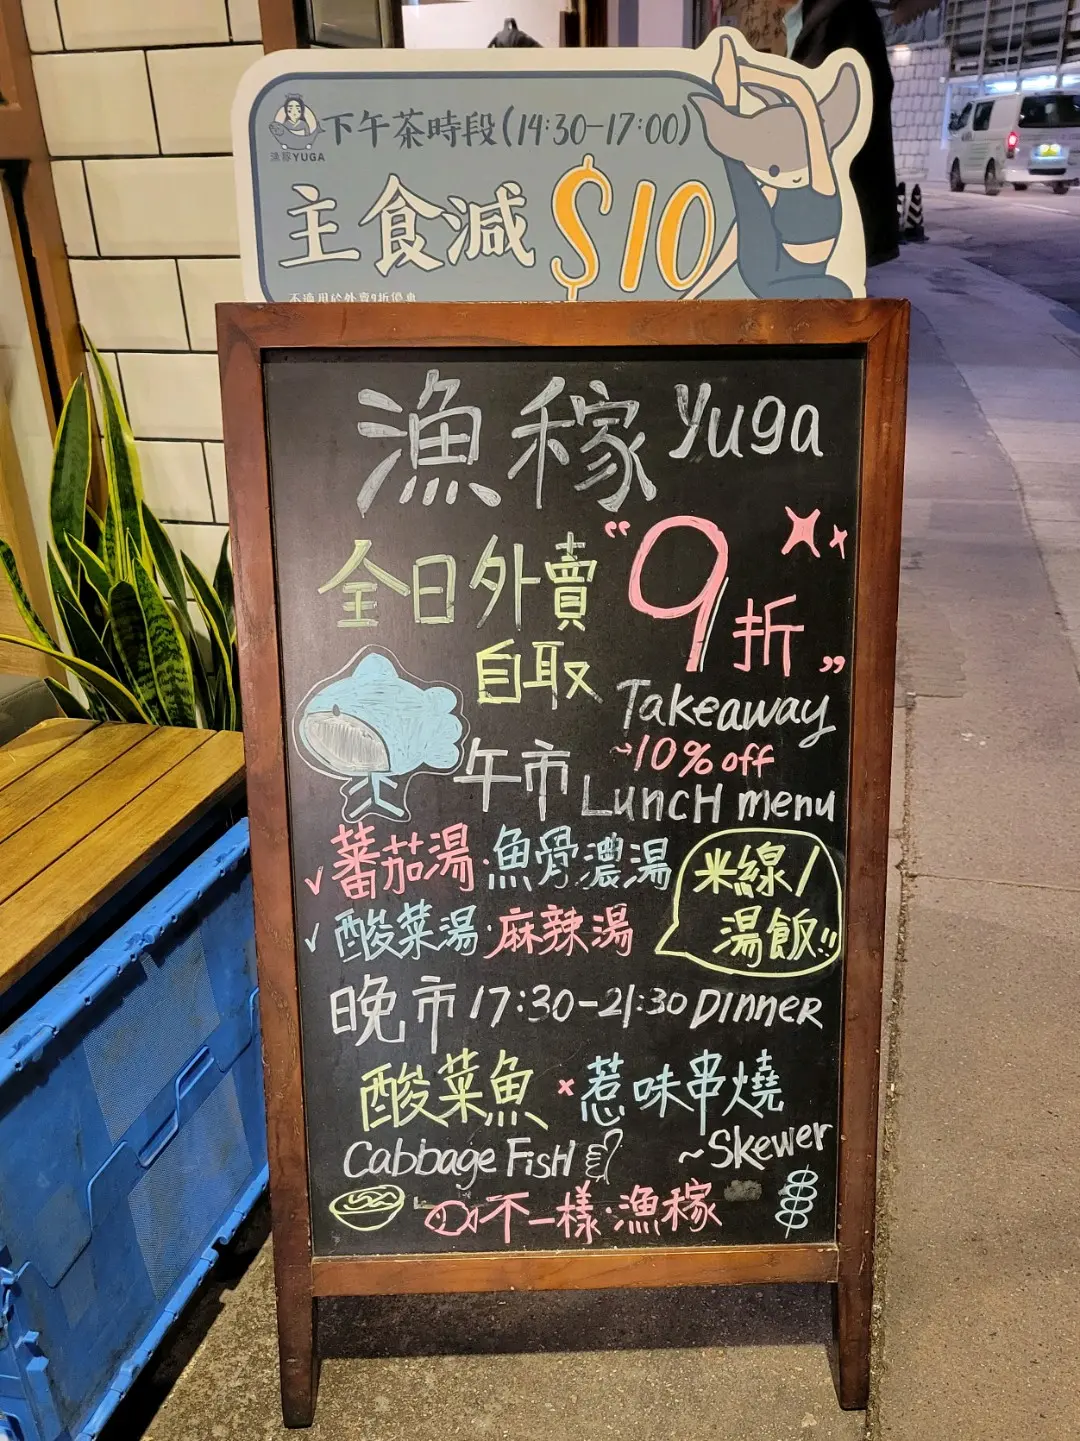 下午茶時段(14:30-17:00)
漁稼YUGA
主食減 $10
不適用於外賣9折優惠
漁稼 Yuga
全日外賣 “9折”
自取
Takeaway
~10% off
午市 LuncH menu
✓蕃茄湯·魚骨濃湯
✓酸菜湯·麻辣湯
米線/
湯飯!!
晚市 17:30-21:30 DinneR
酸菜魚×惹味串燒
Cabbage FisH
~Skewer
不一樣·漁稼